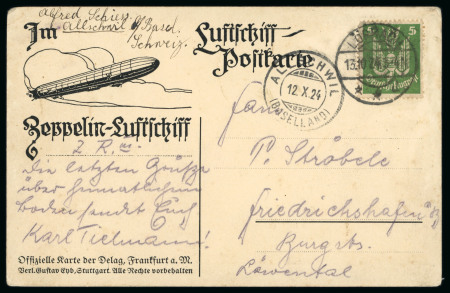 Alfred Schiess
Allschwil b/Basel
Schweiz.
Im Luftschiff-
Postkarte
Zeppelin-Luftschiff
Z R III
Die letzten Grüsse
über heimatlichem
Boden sendet Euch
Karl Tielmann!
Offizielle Karte der Delag, Frankfurt a. M.
Verl. Gustav Eyb, Stuttgart. Alle Rechte vorbehalten
ALLSCHWIL
12.X.24
(BASELLAND)
13.10.24
5
Fam.
P. Ströbele
Friedrichshafen
Löwental